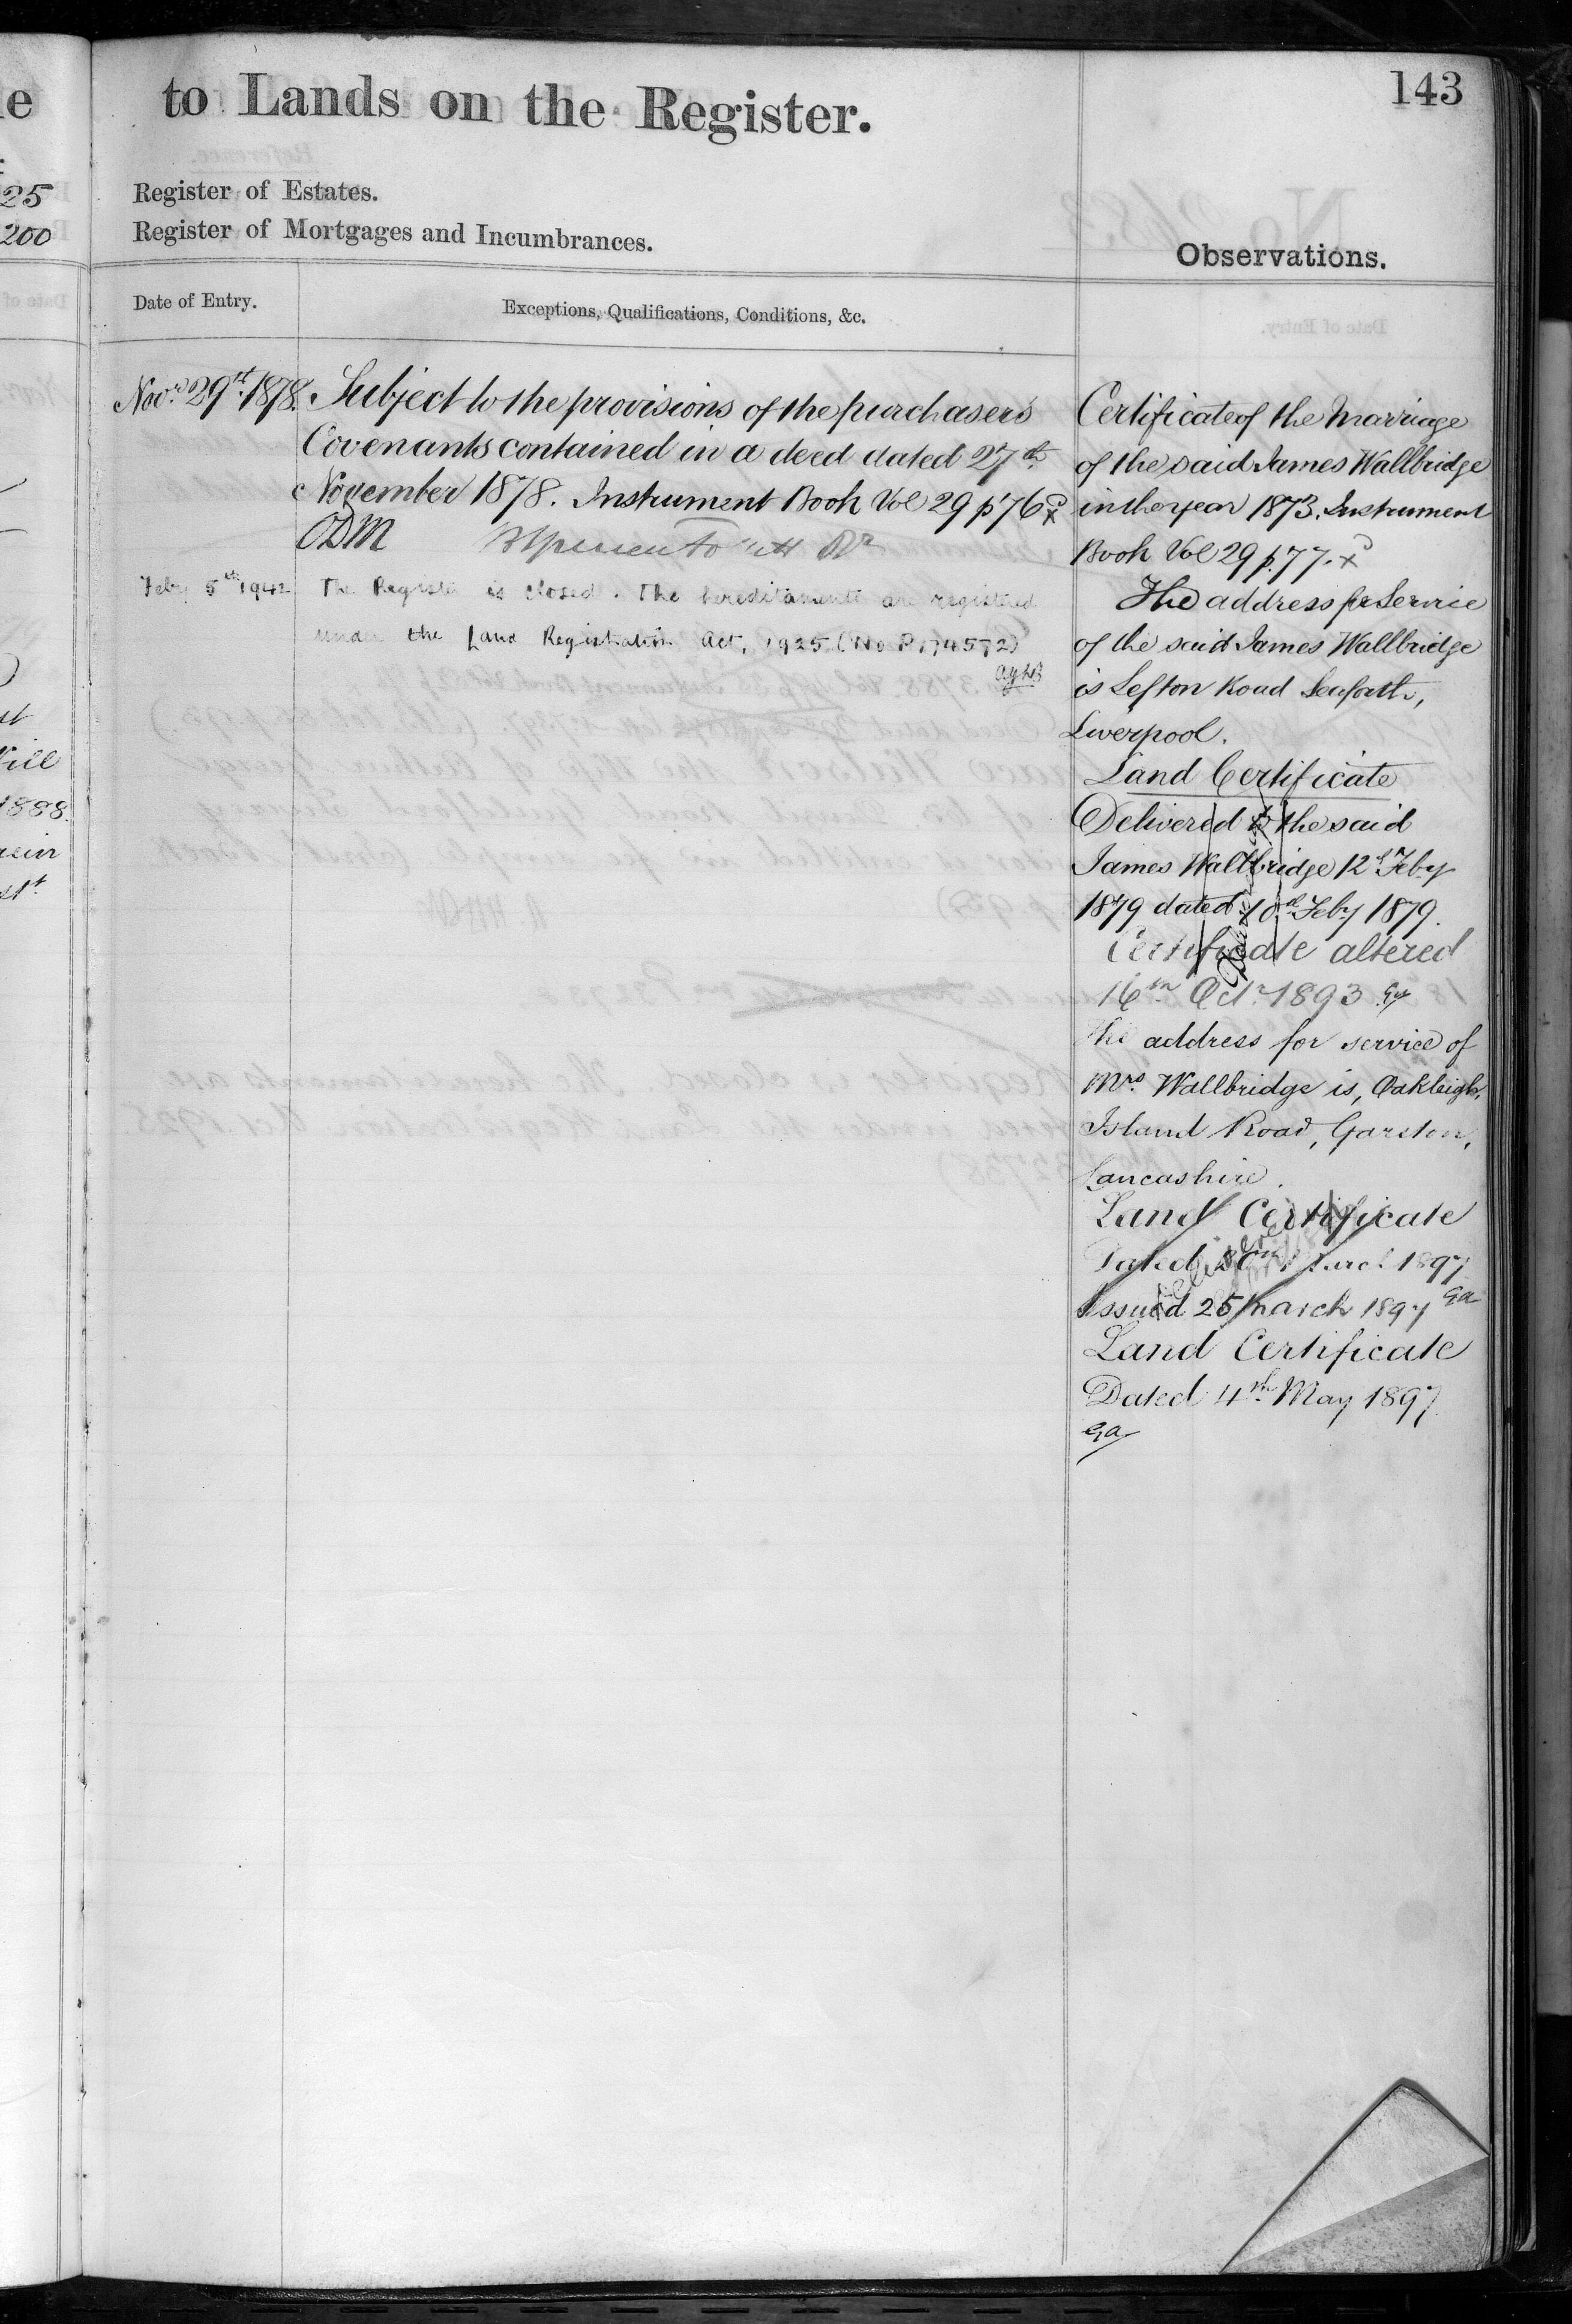 to Lands on the Register.
143
Register of Estates.
Register of Mortgages and Incumbrances.
Observations.
Date of Entry.
Exceptions, Qualifications, Conditions, &c.
Novr. 29th. 1878.
Subject to the provisions of the purchasers
Covenants contained in a deed dated 27th
November 1878. Instrument Book Vol 29 p 76
ODM
Feby 5th 1942
The Register is closed. The hereditaments are registered
under the Land Registration Act, 1925 (No P174572)
Certificate of the Marriage
of the said James Wallbridge
in the year 1873. Instrument
Book Vol 29 p. 77.
The address for Service
of the said James Wallbridge
is Sefton Road Seaforth,
Liverpool.
Land Certificate
Delivered to the said
James Wallbridge 12th Feby
1879 dated 10th Feby 1879.
Certificate altered
16th Octr 1893
The address for service of
Mrs. Wallbridge is, Oakleigh,
Island Road, Garston,
Lancashire.
Land Certificate
Dated March 1897
Issued 25 March 1897 Ga
Land Certificate
Dated 4th May 1897
Ga
le
25
200
1888